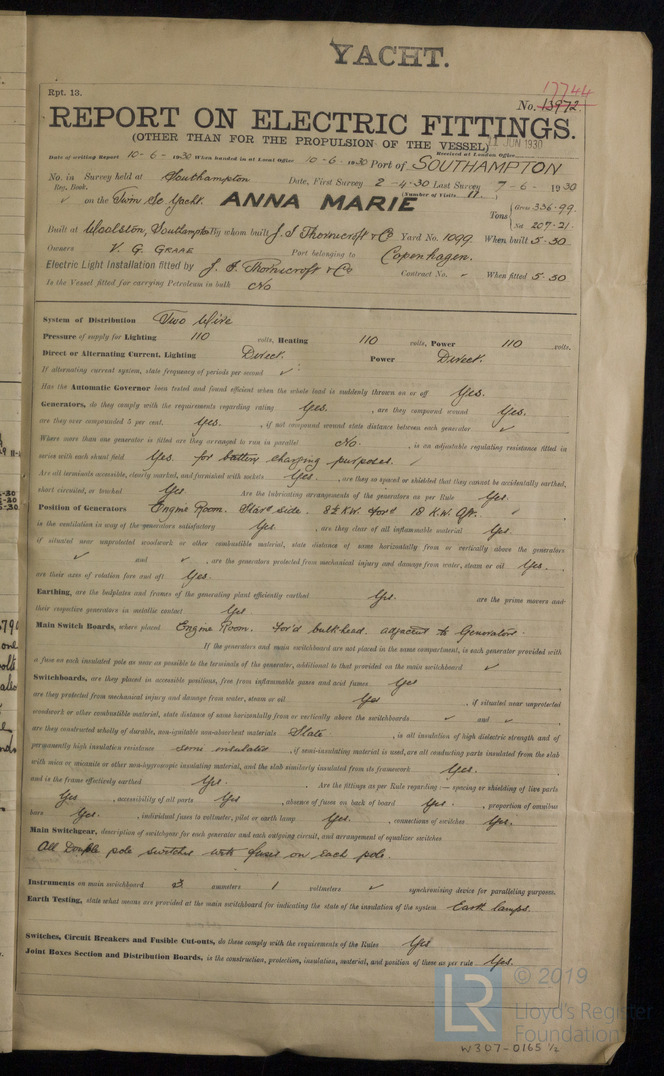 YACHT.
Rpt. 13.
17744
No. 13972
REPORT ON ELECTRIC FITTINGS.
(OTHER THAN FOR THE PROPULSION OF THE VESSEL)
11 JUN 1930
Date of writing Report 10-6-1930 When handed in at Local Office 10-6-1930 Port of SOUTHAMPTON
Received at London Office
No. in Survey held at Southampton Date, First Survey 2-4-30 Last Survey 7-6-1930
Reg. Book. (Number of Visits 11.)
✓ on the Twin Sc Yacht. ANNA MARIE Tons { Gross 336.99. Net 207.21.
Built at Woolston, Southampton By whom built J. I. Thornycroft & Co Yard No. 1099. When built 5-30.
Owners V. G. GRAAE Port belonging to Copenhagen.
Electric Light Installation fitted by J. I. Thornycroft & Co Contract No. - When fitted 5-30
Is the Vessel fitted for carrying Petroleum in bulk No
System of Distribution Two Wire
Pressure of supply for Lighting 110 volts, Heating 110 volts, Power 110 volts.
Direct or Alternating Current, Lighting Direct. Power Direct.
If alternating current system, state frequency of periods per second ✓
Has the Automatic Governor been tested and found efficient when the whole load is suddenly thrown on or off Yes.
Generators, do they comply with the requirements regarding rating Yes. , are they compound wound Yes.
are they over compounded 5 per cent. Yes. , if not compound wound state distance between each generator ✓
Where more than one generator is fitted are they arranged to run in parallel No. , is an adjustable regulating resistance fitted in
series with each shunt field Yes. for battery charging purposes. ✓
Are all terminals accessible, clearly marked, and furnished with sockets Yes. , are they so spaced or shielded that they cannot be accidentally earthed,
short circuited, or touched Yes Are the lubricating arrangements of the generators as per Rule Yes.
Position of Generators Engine Room. Star'd side. 8½ K.W. For'd 18 K.W. Aft. ✓
is the ventilation in way of the generators satisfactory Yes , are they clear of all inflammable material Yes.
if situated near unprotected woodwork or other combustible material, state distance of same horizontally from or vertically above the generators
✓ and ✓ , are the generators protected from mechanical injury and damage from water, steam or oil Yes. ,
are their axes of rotation fore and aft Yes.
Earthing, are the bedplates and frames of the generating plant efficiently earthed Yes. are the prime movers and
their respective generators in metallic contact Yes.
Main Switch Boards, where placed Engine Room. For'd bulkhead. adjacent to Generators.
If the generators and main switchboard are not placed in the same compartment, is each generator provided with
a fuse on each insulated pole as near as possible to the terminals of the generator, additional to that provided on the main switchboard ✓
Switchboards, are they placed in accessible positions, free from inflammable gases and acid fumes Yes
are they protected from mechanical injury and damage from water, steam or oil Yes , if situated near unprotected
woodwork or other combustible material, state distance of same horizontally from or vertically above the switchboards ✓ and ✓ ,
are they constructed wholly of durable, non-ignitable non-absorbent materials Slate , is all insulation of high dielectric strength and of
permanently high insulation resistance semi insulator , if semi-insulating material is used, are all conducting parts insulated from the slab
with mica or micanite or other non-hygroscopic insulating material, and the slab similarly insulated from its framework Yes. ,
and is the frame effectively earthed Yes. Are the fittings as per Rule regarding:— spacing or shielding of live parts
Yes , accessibility of all parts Yes , absence of fuses on back of board Yes. , proportion of omnibus
bars Yes. , individual fuses to voltmeter, pilot or earth lamp Yes. , connections of switches Yes.
Main Switchgear, description of switchgear for each generator and each outgoing circuit, and arrangement of equalizer switches
All Double pole switches with fuses on each pole.
Instruments on main switchboard ammeters 1 voltmeters ✓ synchronising device for paralleling purposes.
Earth Testing, state what means are provided at the main switchboard for indicating the state of the insulation of the system Earth lamps.
Switches, Circuit Breakers and Fusible Cut-outs, do these comply with the requirements of the Rules Yes
Joint Boxes Section and Distribution Boards, is the construction, protection, insulation, material, and position of these as per rule Yes.
LR
© 2019
Lloyd's Register
Foundation
W307-0165 ½